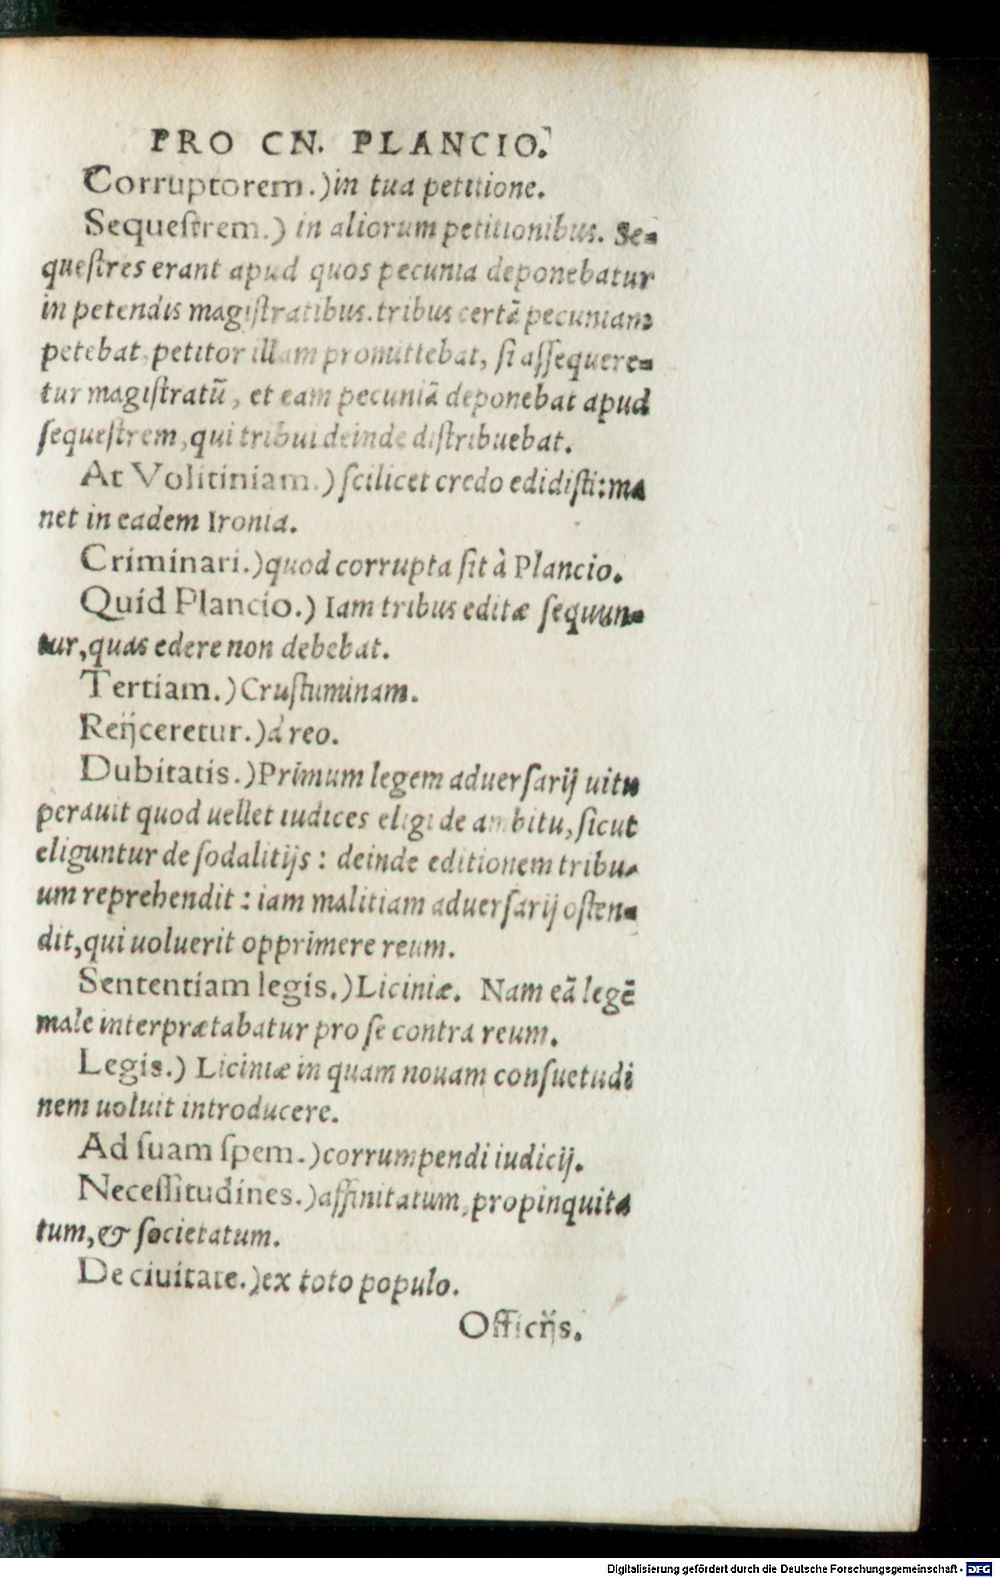 PRO CN. PLANCIO.
Corruptorem.) in tua petitione.
Sequeſtrem.) in aliorum petitionibus. Se-
queſtres erant apud quos pecunia deponebatur
in petendis magiſtratibus. tribus certā pecuniam
petebat, petitor illam promittebat, ſi aſſequere-
tur magiſtratū, et eam pecuniā deponebat apud
ſequeſtrem, qui tribui deinde diſtribuebat.
At Volitiniam.) ſcilicet credo edidiſti: ma
net in eadem Ironia.
Criminari.) quod corrupta ſit à Plancio.
Quid Plancio.) Iam tribus editæ ſequun-
tur, quas edere non debebat.
Tertiam.) Cruſtuminam.
Reijceretur.) à reo.
Dubitatis.) Primum legem aduerſarij uitu
perauit quod uellet iudices eligi de ambitu, ſicut
eliguntur de ſodalitijs: deinde editionem tribu-
um reprehendit: iam malitiam aduerſarij oſten-
dit, qui uoluerit opprimere reum.
Sententiam legis.) Liciniæ. Nam eā legē
male interprætabatur pro ſe contra reum.
Legis.) Liciniæ in quam nouam conſuetudi
nem uoluit introducere.
Ad ſuam ſpem.) corrumpendi iudicij.
Neceſſitudines.) affinitatum, propinquita
tum, & ſocietatum.
De ciuitate.) ex toto populo.
Officijs.
Digitalisierung gefördert durch die Deutsche Forschungsgemeinschaft - DFG